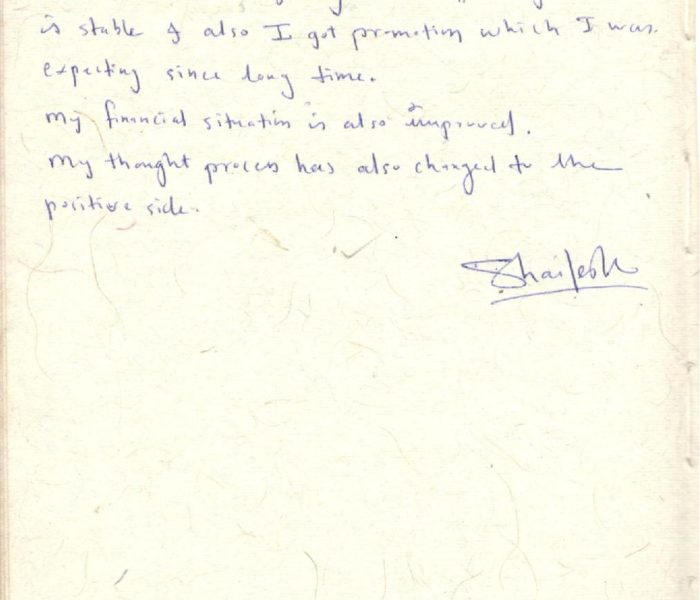 is stable & also I got promotion which I was
expecting since long time.
my financial situation is also improved.
my thought process has also changed to the
positive side.
Shailesh